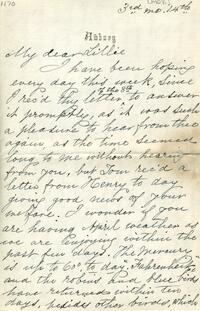 1170
3rd mo. 14th
My dear Lillie
I have been hoping
every day this week, since
I rec'd thy letter, to answer
of the 8th
it promptly, as it was such
a pleasure to hear from thee
again as the time seemed
long to me without hearing
from you, but Tom rec'd a
letter from Henry to day
giving good news of your
welfare. I wonder if you
are having April weather as
we are enjoying within the
past few days. The Mercury
is up to 60° to day, Fahrenheit
and the robins and blue birds
have returned within ten
days, besides other birds, which